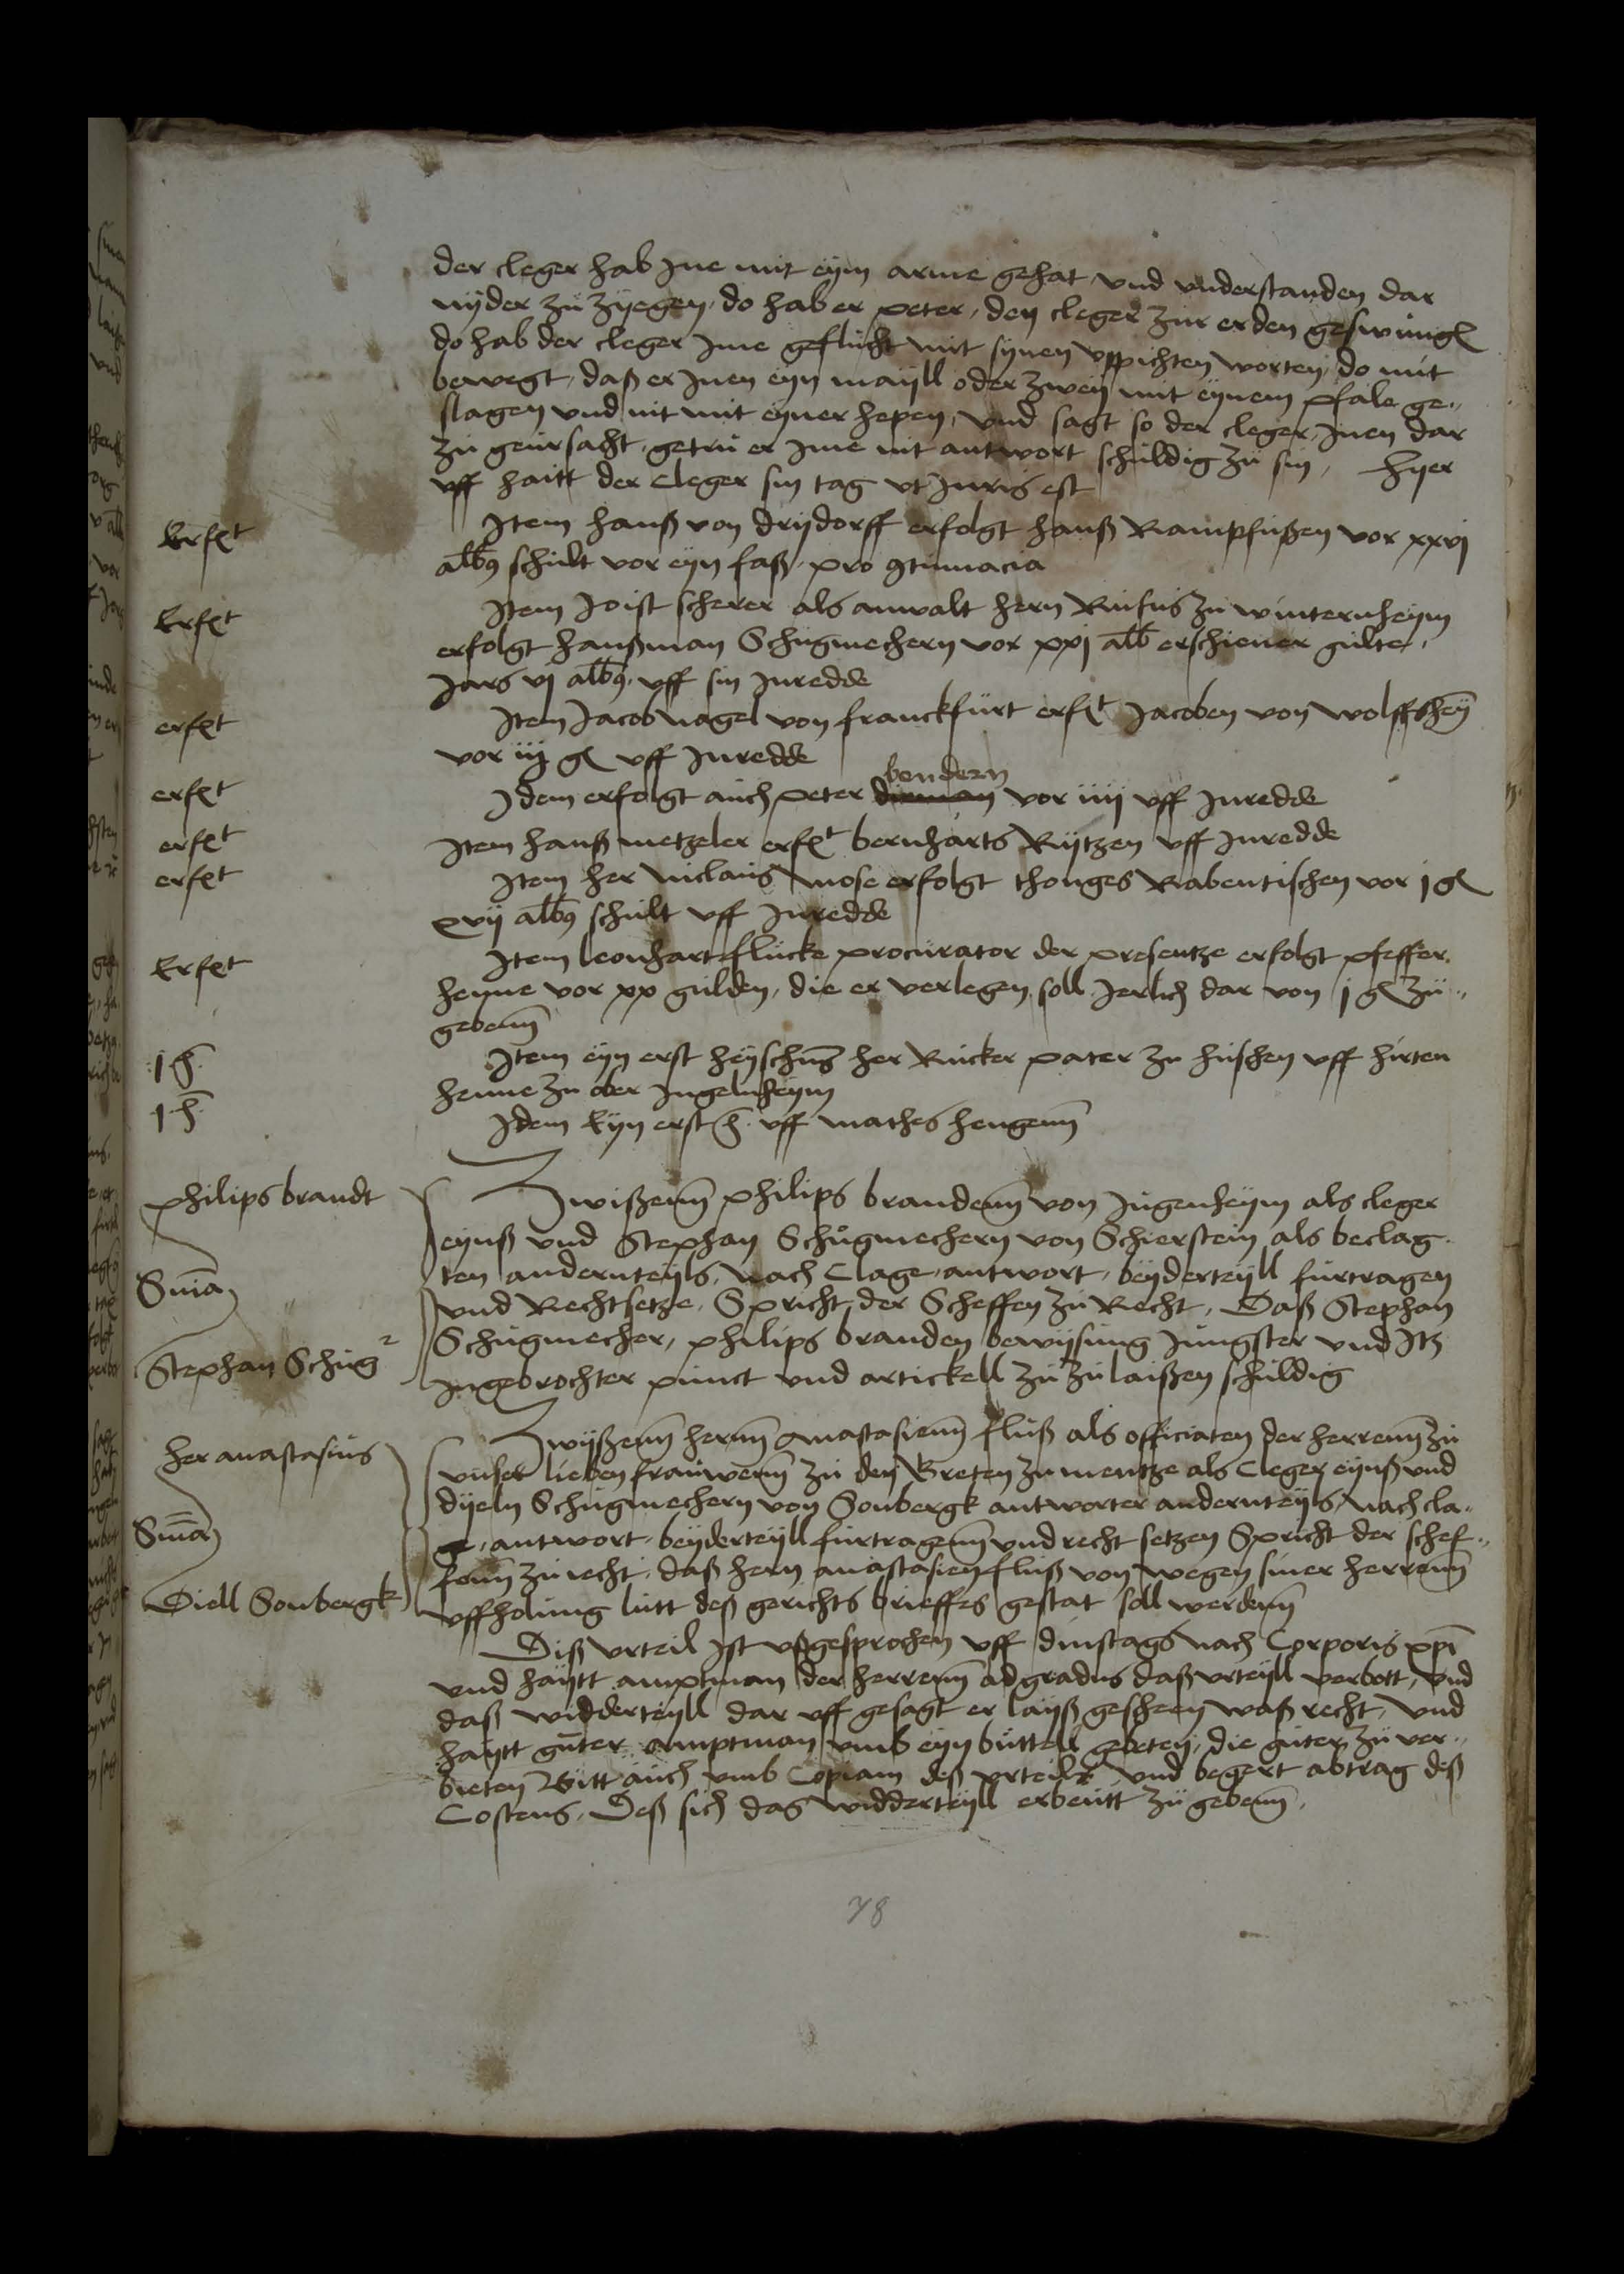 der cleger hab Ine mit eym arme gehat vnd vnderstanden dar
nyder zu zyegen, do hab er peter, den cleger zur erden geswungen
do hab der cleger Ime geflucht mit synen vppichten worten, do mit
bewegt, daß er Inen eyn mayll oder zwey mit eynem pfale ge-
slagen vnd nit mit eyner hepen, vnd sagt so der cleger, Inen dar
zu geursacht, getru er Ime nit antwort schuldig zu sin, Hyer
vff haitt der Cleger sin tag vt Juris est
Erft
Item hanß von drydorff erfolgt hanß Rampfußen vor xxvj
albus schult vor eyn faß, pro contumacia
Erft
Item Joist scherer als anwalt hern Rufus zu winternheym
erfolgt hanßman Schugmechern vor xxj alb erschiener gulte,
Jars vj albus, vff sin Inredde
erft
Item Jacob nagel von franckfurt erft Jacoben von wolffsheym
vor iij gl vff Inredde
bendern
erft
Idem erfolgt auch peter vor iiij vff Inredde
erft
Item hanß metzeler erft bernharts Rytzen vff Inredde
erft
Item her niclais mose erfolgt thonges Rabentischen vor j gl
xvij albus schult vff Inredde
Erft
Item leonhart flucke procurator der presentze erfolgt pfeffer-
henne vor xx gulden, die er verlegen soll Jerlich dar von j gl zu-
gebenn
1 h
Item eyn erst heyschung her Rucker pater zu huschen vff hirten
henne zu ober Ingelnheym
1 h
Idem Eyn erst h vff mathes hengenn
philips brandt
Zwißenn philips brandenn von Jugenheym als cleger
eynß vnd Stephan Schugmechern von Schierstein als beclag-
ten andernteyls, Nach Clage, antwort, beyderteyll furtragen
Snia
vnd Rechtsetze, Spricht der Scheffen zu Recht, Daß Stephan
Schugmecher, philips branden bewysung Jungster vnd Itz
Stephan Schug
Ingebrochter punct vnd artickell zu zulaißen schuldig
her anastasius
Zwyßenn hernn Anastasienn fluß als officiaten der herrenn zu
vnser lieben frauwenn zu den Greten zu mentze als Cleger eynß vnd
dyeln Schugmechern von Sonbergk antworter andernteyls, Nach cla-
Snia
ge, antwort, beyderteyll furtragenn vnd recht setzen Spricht der schef-
fenn zu recht, daß hern anastasien fluß von wegen siner herrenn
Diell Sonbergk
vffholung lutt deß gerichts brieffes gestat soll werdenn
Diß vrteil ist vßgesprochen vff dinstags nach Corporis xpi
vnd haytt amptman der herrenn ad gradus daß vrteyll verbott, vnd
daß widderteyll dar vff gesagt er layß gescheen waß recht, vnd
haytt guter amptman vmb eyn büttell gebeten, die guter zu ver-
bieten Bitt auch vmb Copiam deß vrteils vnd begert abtrag deß
Costens, Deß sich das widderteyll erbeutt zu gebenn,
78